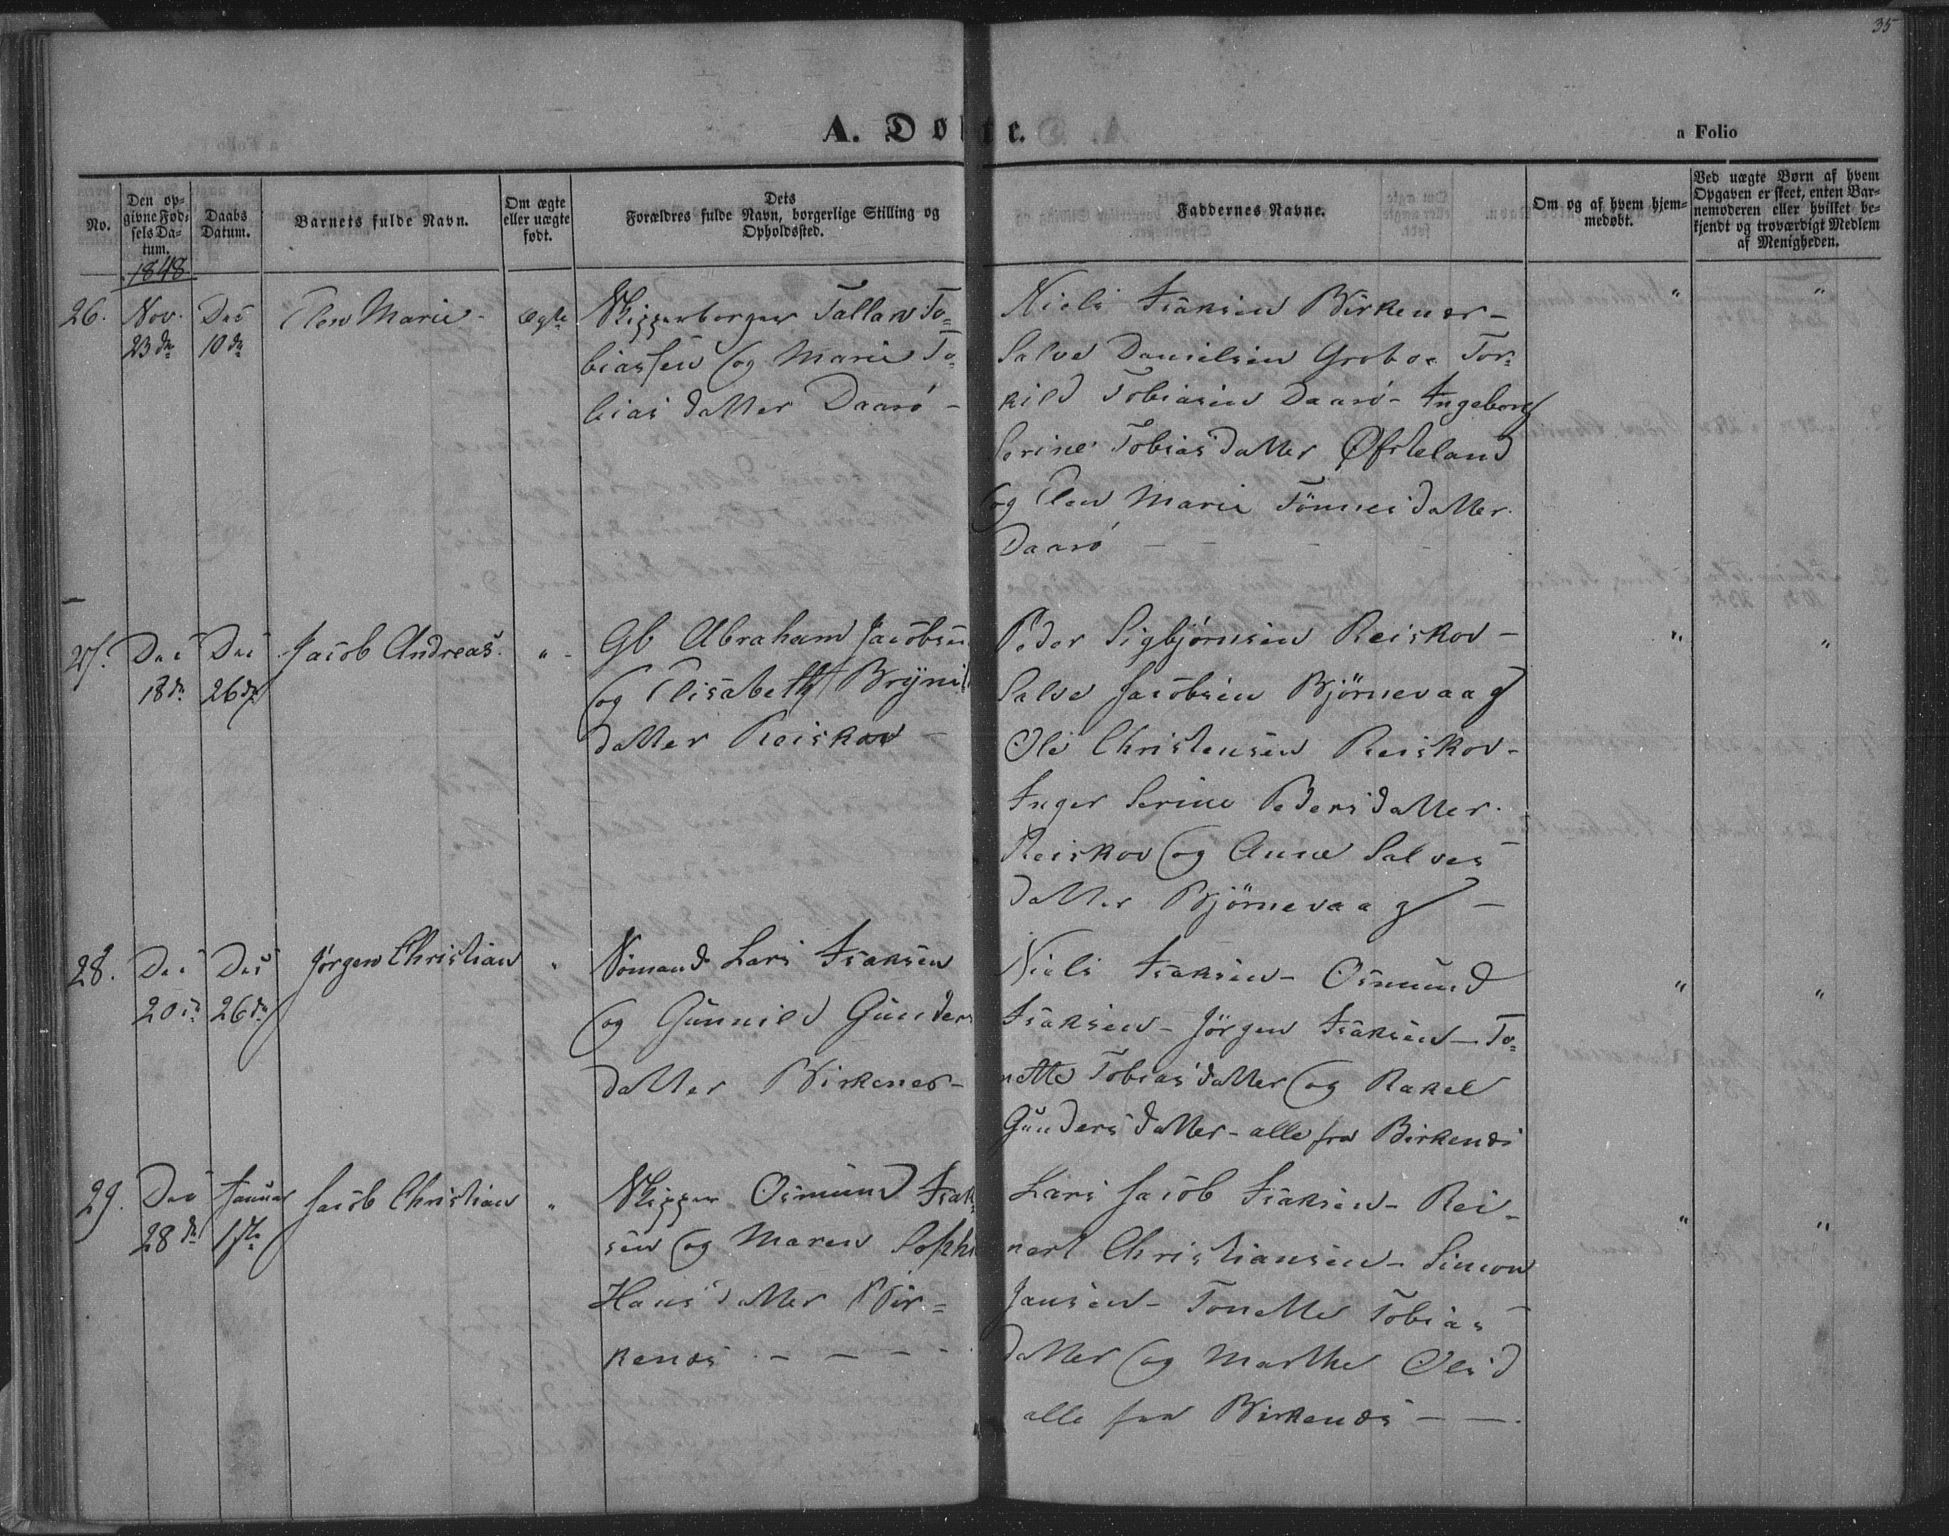 35
A. Døbte.
a Folio
No.
Den op-
givne Fød-
sels Da-
tum.
Daabs
Datum.
Barnets fulde Navn.
Om ægte
eller uægte
født.
Dets
Forældres fulde Navn, borgerlige Stilling og
Opholdssted.
Faddernes Navne.
Om og af hvem hjem-
medøbt.
Ved uægte Børn af hvem
Opgaven er skeet, enten Bar-
nemoderen eller hvilket be-
kjendt og troværdigt Medlem
af Menigheden.
1848
26. Nov. 23de Des 10de Elen Marie - Ægte
Skipperborger Tallak To=
biassen og Marie To=
bias datter Daarø -
Niels Isaksen Birkenes -
Salve Danielsen Grobœ Tor=
kild Tobiasen Daarø - Ingeborg
Serine Tobias datter Øfsteland
og Elen Marie Tönnes datter
Daarø - - - -
" "
27. Des 18de Des 26de Jacob Andreas. "
Gb Abraham Jacobsen
og Elisabeth Bryni
datter Reiskov -
Peder Sigbjørnsen Reiskov -
Salve Jacobsen Bjørnevaag
Ole Christensen Reiskov -
Inger Serine Peders datter
Reiskov og Anne Salves
datter Bjørnevaag -
" "
28. Des 20de Des 26de Jørgen Christian "
Sömand Lars Isaksen
og Gunnild Gunders
datter Birkenes -
Niels Isaksen - Osmund
Isaksen - Jörgen Isaksen - To=
nette Tobias datter og Rakel
Gunders datter - alle fra Birkenes
" "
29. Des 28de Januar 1ste Jacob Christian "
Skipper Osmund Isak
sen og Maren Sophi
Hans datter Bir=
kenes - - - -
Lars Jacob Isaksen - Rei-
nert Christiansen - Simon
Jansen - Tonette Tobias
datter og Marthe Ols d
alle fra Birkenes - - -
" "